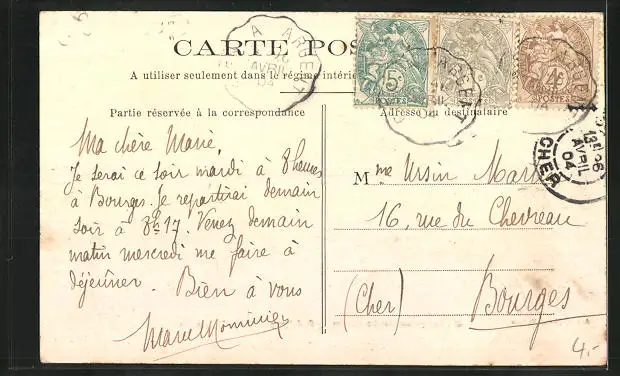 CARTE POS
A utiliser seulement dans le régime intérie
Partie réservée à la correspondance
Adresse du destinataire
Ma chère Marie,
Je serai ce soir mardi à 8 heures
à Bourges. Je repartirai demain
soir à 8h17. Venez demain
matin mercredi me faire à
déjeuner. Bien à vous
Marcel
Mme Ursin Mar
16, rue du Chevreau
(Cher) Bourges
5c
POSTES
4c
POSTES
ARGENT
AVRIL
04
ARGENT
13 26
AVRIL
04
CHER
4.-